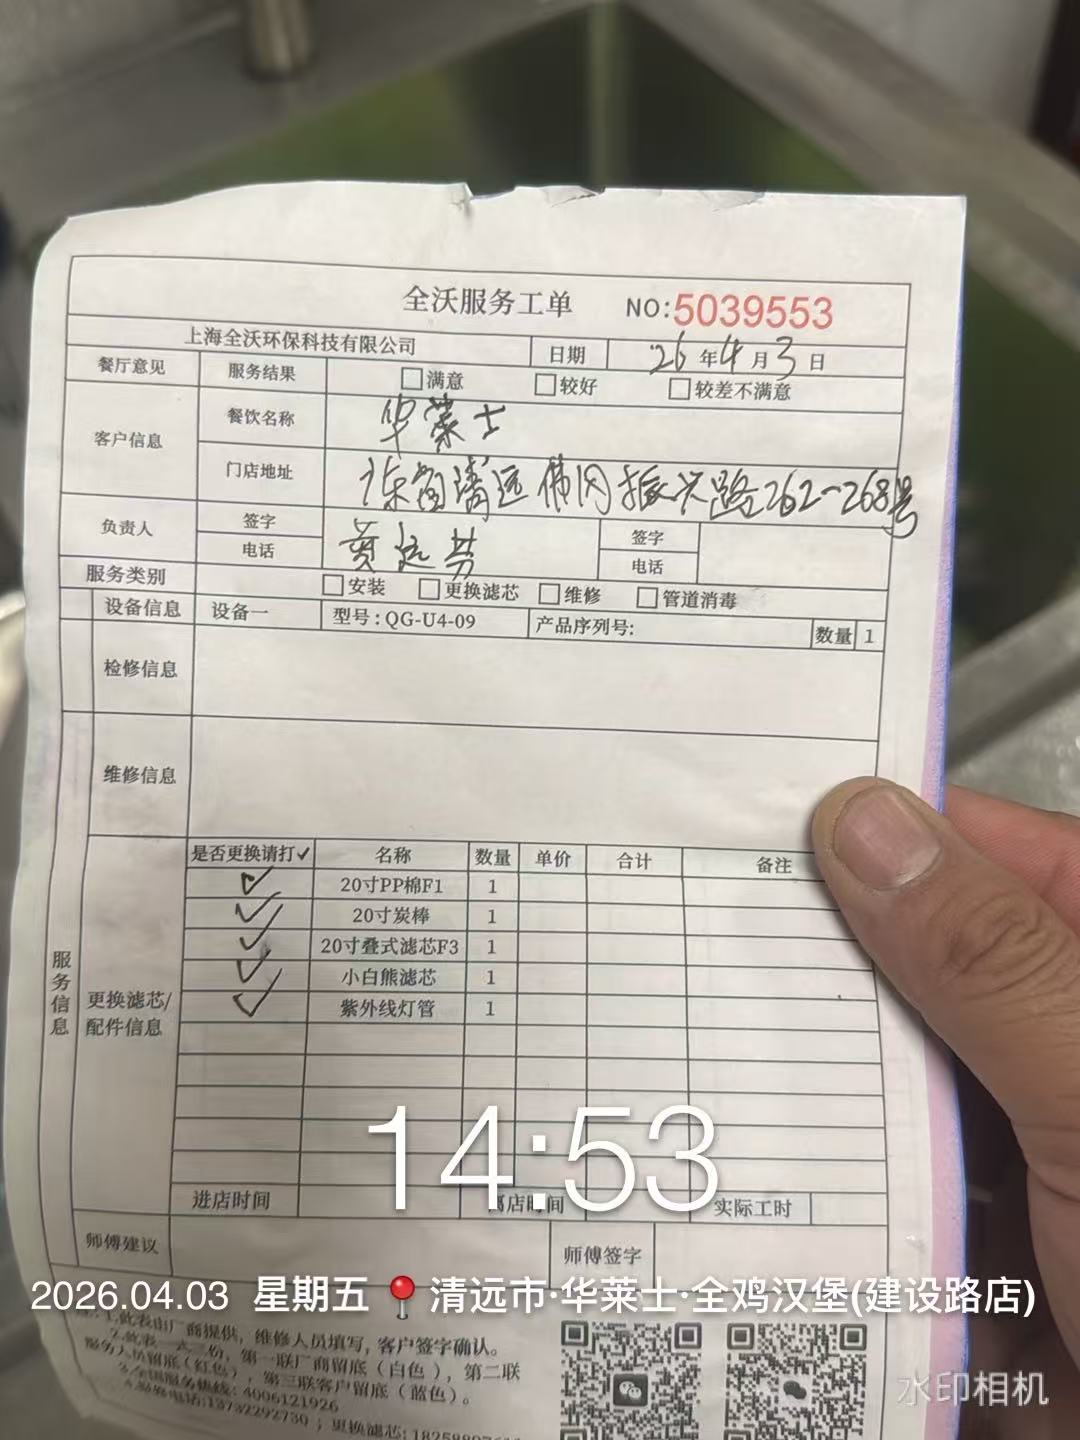 全沃服务工单 NO:5039553
上海全沃环保科技有限公司 日期 26年4月3日
餐厅意见 服务结果 满意 较好 较差不满意
客户信息 餐饮名称 华莱士
门店地址 清远佛冈振兴路262-268号
负责人 签字 黄远芬 签字
电话 电话
服务类别 安装 更换滤芯 维修 管道消毒
设备信息 设备一 型号:QG-U4-09 产品序列号: 数量 1
检修信息
维修信息
服务信息
更换滤芯/配件信息
是否更换请打✓ 名称 数量 单价 合计 备注
✓ 20寸PP棉F1 1
✓ 20寸炭棒 1
✓ 20寸叠式滤芯F3 1
✓ 小白熊滤芯 1
✓ 紫外线灯管 1
14:53
进店时间 离店时间 实际工时
师傅建议 师傅签字
2026.04.03 星期五 清远市·华莱士·全鸡汉堡(建设路店)
1.此表由厂商提供，维修人员填写，客户签字确认。
2.此表一式三份，第一联厂商留底（白色），第二联
服务人员留底(红色)，第三联客户留底（蓝色）。
3.全国服务热线：4006121926
电话:13732292730；更换滤芯:
水印相机